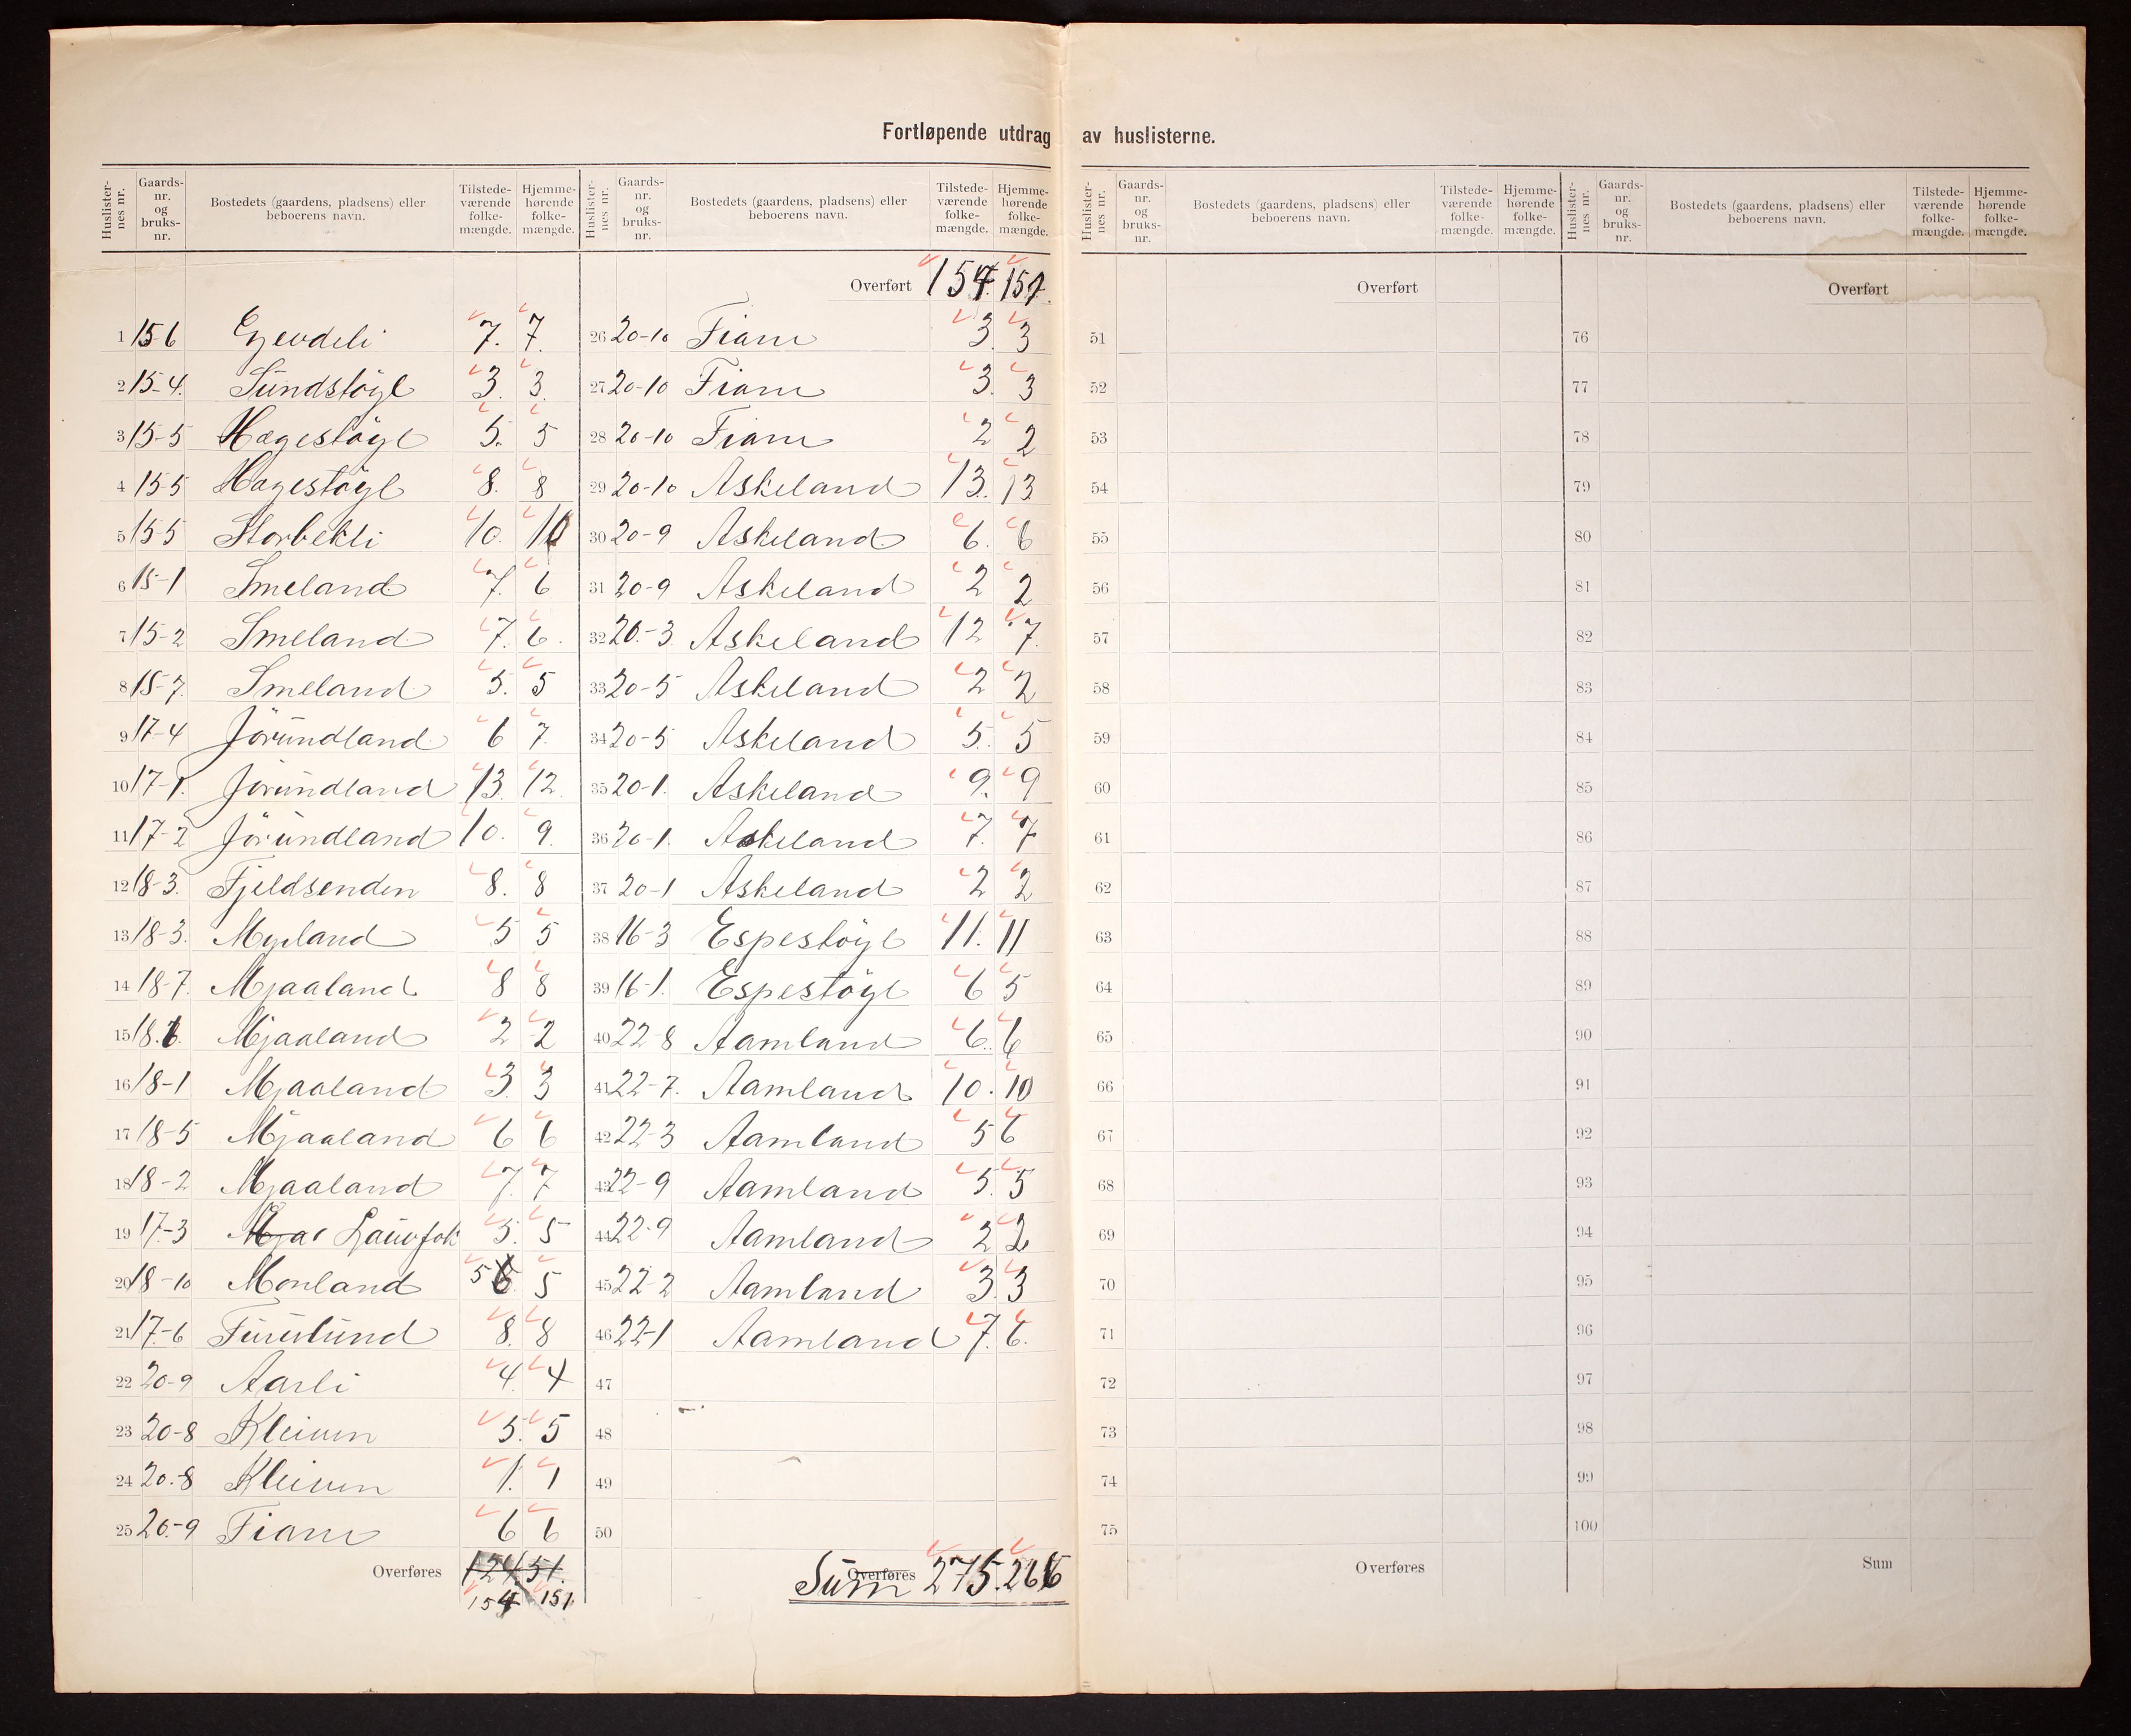 Fortløpende utdrag av huslisterne.
Huslister-nes nr. Gaards-nr. og bruks-nr. Bostedets (gaardens, pladsens) eller beboerens navn. Tilstede-værende folke-mængde. Hjemme-hørende folke-mængde.
1 15-6 Gjevdeli 7. 7.
2 15-4. Sundstøyl 3. 3.
3 15-5 Hægestøyl 5. 5
4 15-5 Hægestøyl 8. 8
5 15-5 Storbekli 10. 10
6 15-1 Smeland 7. 6
7 15-2 Smeland 7. 6.
8 15-7. Smeland 5. 5
9 17-4 Jörundland 6 7.
10 17-1. Jörundland 13. 12.
11 17-2 Jörundland 10. 9.
12 18-3. Fjeldsenden 8. 8
13 18-3. Myrland 5 5
14 18-7. Mjaaland 8 8
15 18.6. Mjaaland 2 2
16 18-1 Mjaaland 3. 3
17 18-5 Mjaaland 6 6
18 18-2 Mjaaland 7. 7
19 17-3 Mjaa 5. 5
20 18-10 Monland 5 6 5
21 17-6 Furulund 8. 8
22 20-9 Aasli 4. 4
23 20-8 Kleivен 5. 5
24 20.-8 Kleiven 1. 1
25 20.-9 Fiane 6 6
Overføres 124 151.
154 151.
Huslister-nes nr. Gaards-nr. og bruks-nr. Bostedets (gaardens, pladsens) eller beboerens navn. Tilstede-værende folke-mængde. Hjemme-hørende folke-mængde.
Overført 154. 151.
26 20-10 Fiane 3. 3
27 20-10 Fiane 3. 3
28 20-10 Fiane 2 2
29 20-10 Askeland 13. 13
30 20-9 Askeland 6. 6
31 20-9 Askeland 2 2
32 20.-3. Askeland 12 7.
33 20-5 Askeland 2 2
34 20-5 Askeland 5. 5
35 20-1. Askeland 9. 9
36 20-1. Askeland 7. 7
37 20-1 Askeland 2 2
38 16-3 Espestøyl 11. 11
39 16-1. Espestøyl 6 5
40 22-8 Aamland 6. 6
41 22-7. Aamland 10. 10
42 22-3 Aamland 5 6
43 22-9 Aamland 5. 5
44 22-9 Aamland 2 2
45 22-2 Aamland 3. 3
46 22-1 Aamland 7. 6.
47
48
49
50
Overføres Sum 275. 266
Huslister-nes nr. Gaards-nr. og bruks-nr. Bostedets (gaardens, pladsens) eller beboerens navn. Tilstede-værende folke-mængde. Hjemme-hørende folke-mængde.
Overført
51
52
53
54
55
56
57
58
59
60
61
62
63
64
65
66
67
68
69
70
71
72
73
74
75
Overføres
Huslister-nes nr. Gaards-nr. og bruks-nr. Bostedets (gaardens, pladsens) eller beboerens navn. Tilstede-værende folke-mængde. Hjemme-hørende folke-mængde.
Overført
76
77
78
79
80
81
82
83
84
85
86
87
88
89
90
91
92
93
94
95
96
97
98
99
100
Sum